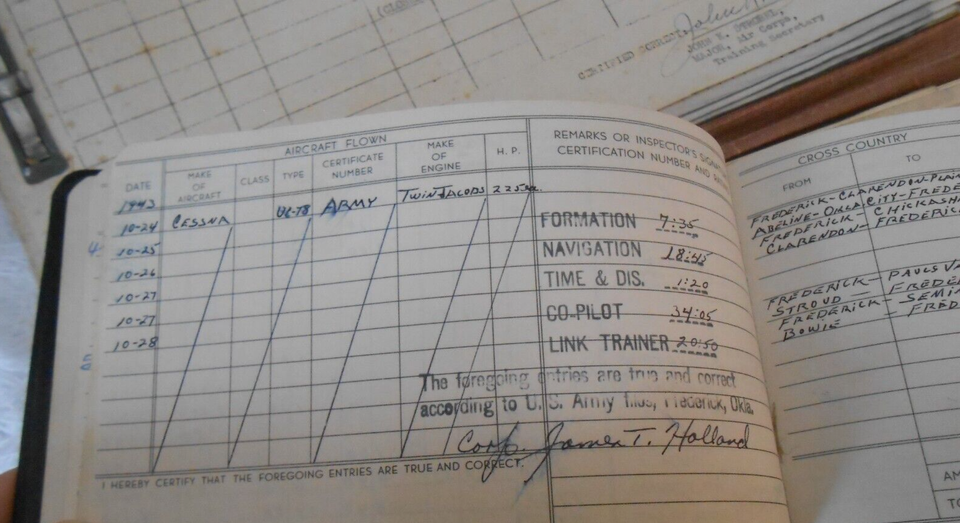 JOHN
MAJOR, Air Corps,
Training Secretary
AIRCRAFT FLOWN
DATE
MAKE OF AIRCRAFT
CLASS
TYPE
CERTIFICATE NUMBER
MAKE OF ENGINE
H. P.
REMARKS OR INSPECTOR'S
CERTIFICATION NUMBER AND
1943
10-24 CESSNA UC-78 ARMY TWIN JACOBS 225
10-25
10-26
10-27
10-27
10-28
FORMATION 7:35
NAVIGATION 18:45
TIME & DIS. 1:20
CO-PILOT 34:05
LINK TRAINER 20:50
The foregoing entries are true and correct
according to U. S. Army files, Frederick, Okla.
Corp. James T. Holland
I HEREBY CERTIFY THAT THE FOREGOING ENTRIES ARE TRUE AND CORRECT.
CROSS COUNTRY
FROM
TO
FREDERICK-CLARENDON-PLAIN
ABELINE-OKLA CITY-FREDE
FREDERICK - CHICKASHA
CLARENDON - FREDERIC
FREDERICK - PAULS VA
STROUD - FREDE
FREDERICK - SEMI
BOWIE - FRED
AM
TO